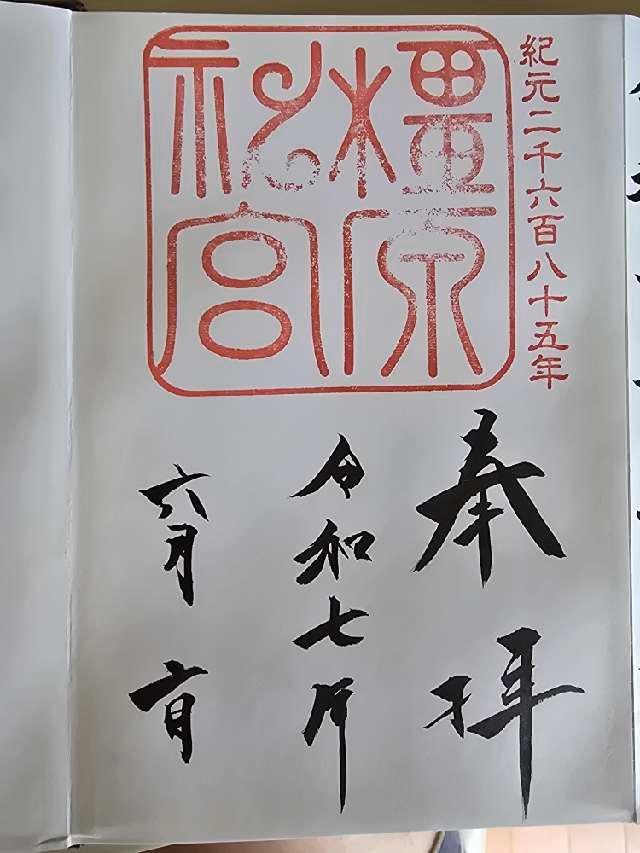 紀元二千六百八十五年
橿原
神宮
奉拝
令和七年
六月六日